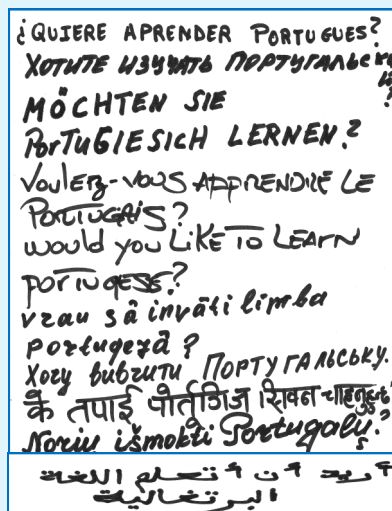 ¿QUIERE APRENDER PORTUGUES?
ХОТИТЕ ИЗУЧАТЬ
MÖCHTEN SIE
PORTUGIESICH LERNEN?
VOULEZ-VOUS APPRENDRE LE
PORTUGAIS?
WOULD YOU LIKE TO LEARN
PORTUGESE?
vrau să învăti limba
portugeză?
Хочу вивчити ПОРТУГАЛЬСЬКУ.
के तपाई पोर्तुगिज सिक्न
Noriu išmokti Portugalų.
أريد أن أتعلم اللغة
البرتغالية